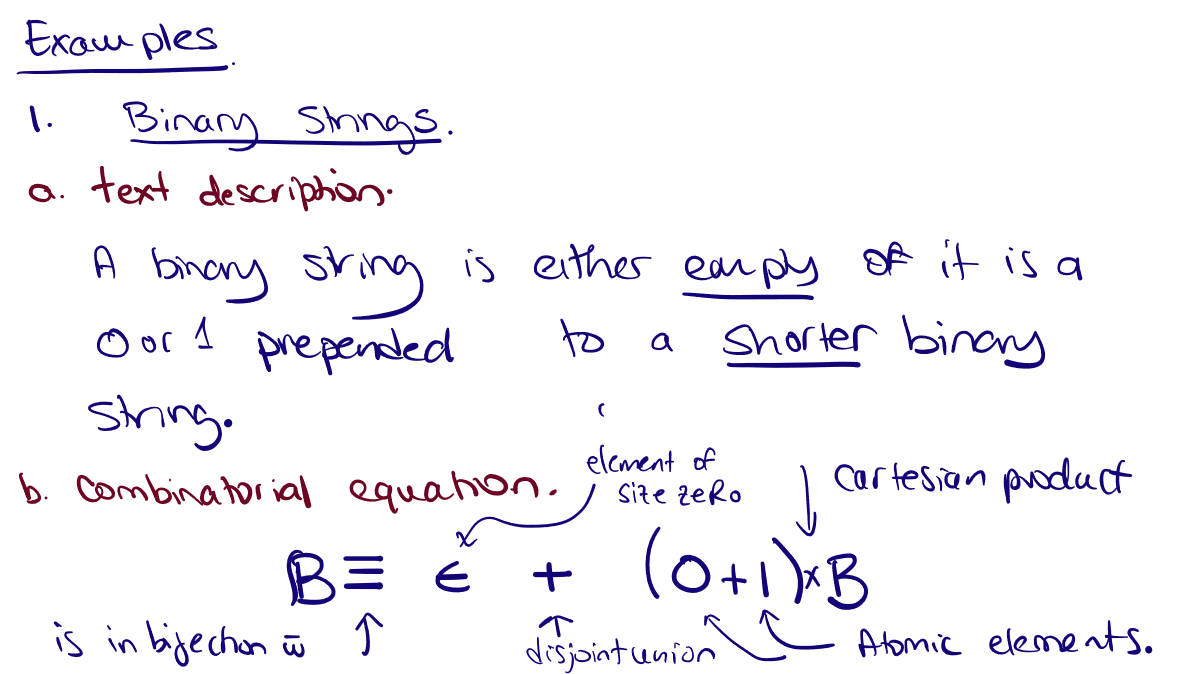 Examples.
1. Binary Strings.
a. text description.
A binary string is either empty or it is a
0 or 1 prepended to a shorter binary
string.
b. Combinatorial equation.
element of
size zero
Cartesian product
B ≡ ϵ + (0+1)×B
is in bijection w̄
disjoint union
Atomic elements.